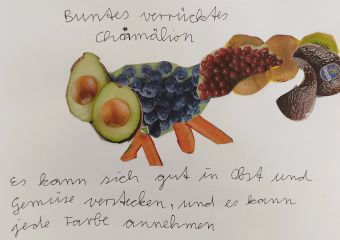 Buntes verrücktes
Chamälion
Es kann sich gut in Obst und
Gemüse verstecken, und es kann
jede Farbe annehmen